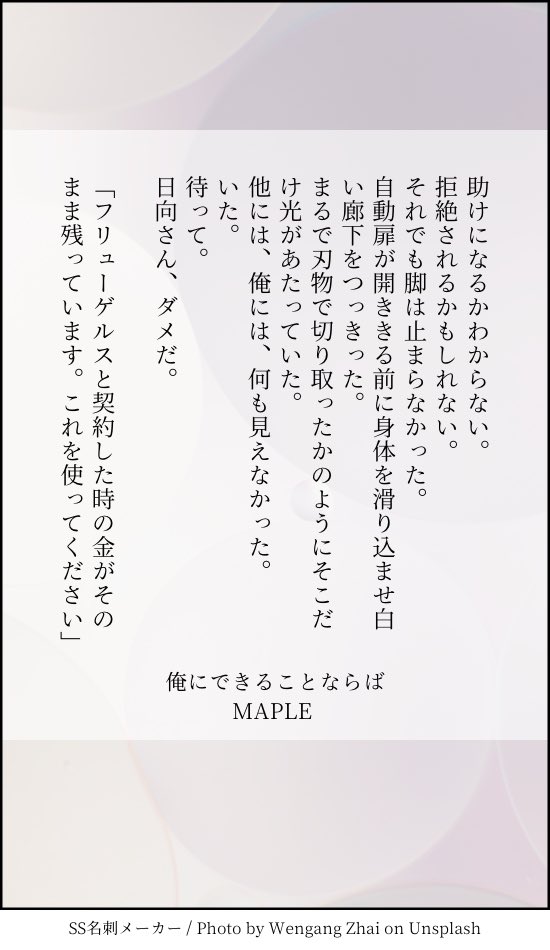 助けになるかわからない。
拒絶されるかもしれない。
それでも脚は止まらなかった。
自動扉が開ききる前に身体を滑り込ませ白
い廊下をつっきった。
まるで刃物で切り取ったかのようにそこだ
け光があたっていた。
他には、俺には、何も見えなかった。
いた。
待って。
日向さん、ダメだ。
「フリューゲルスと契約した時の金がその
まま残っています。これを使ってください」
俺にできることならば
MAPLE
SS名刺メーカー / Photo by Wengang Zhai on Unsplash